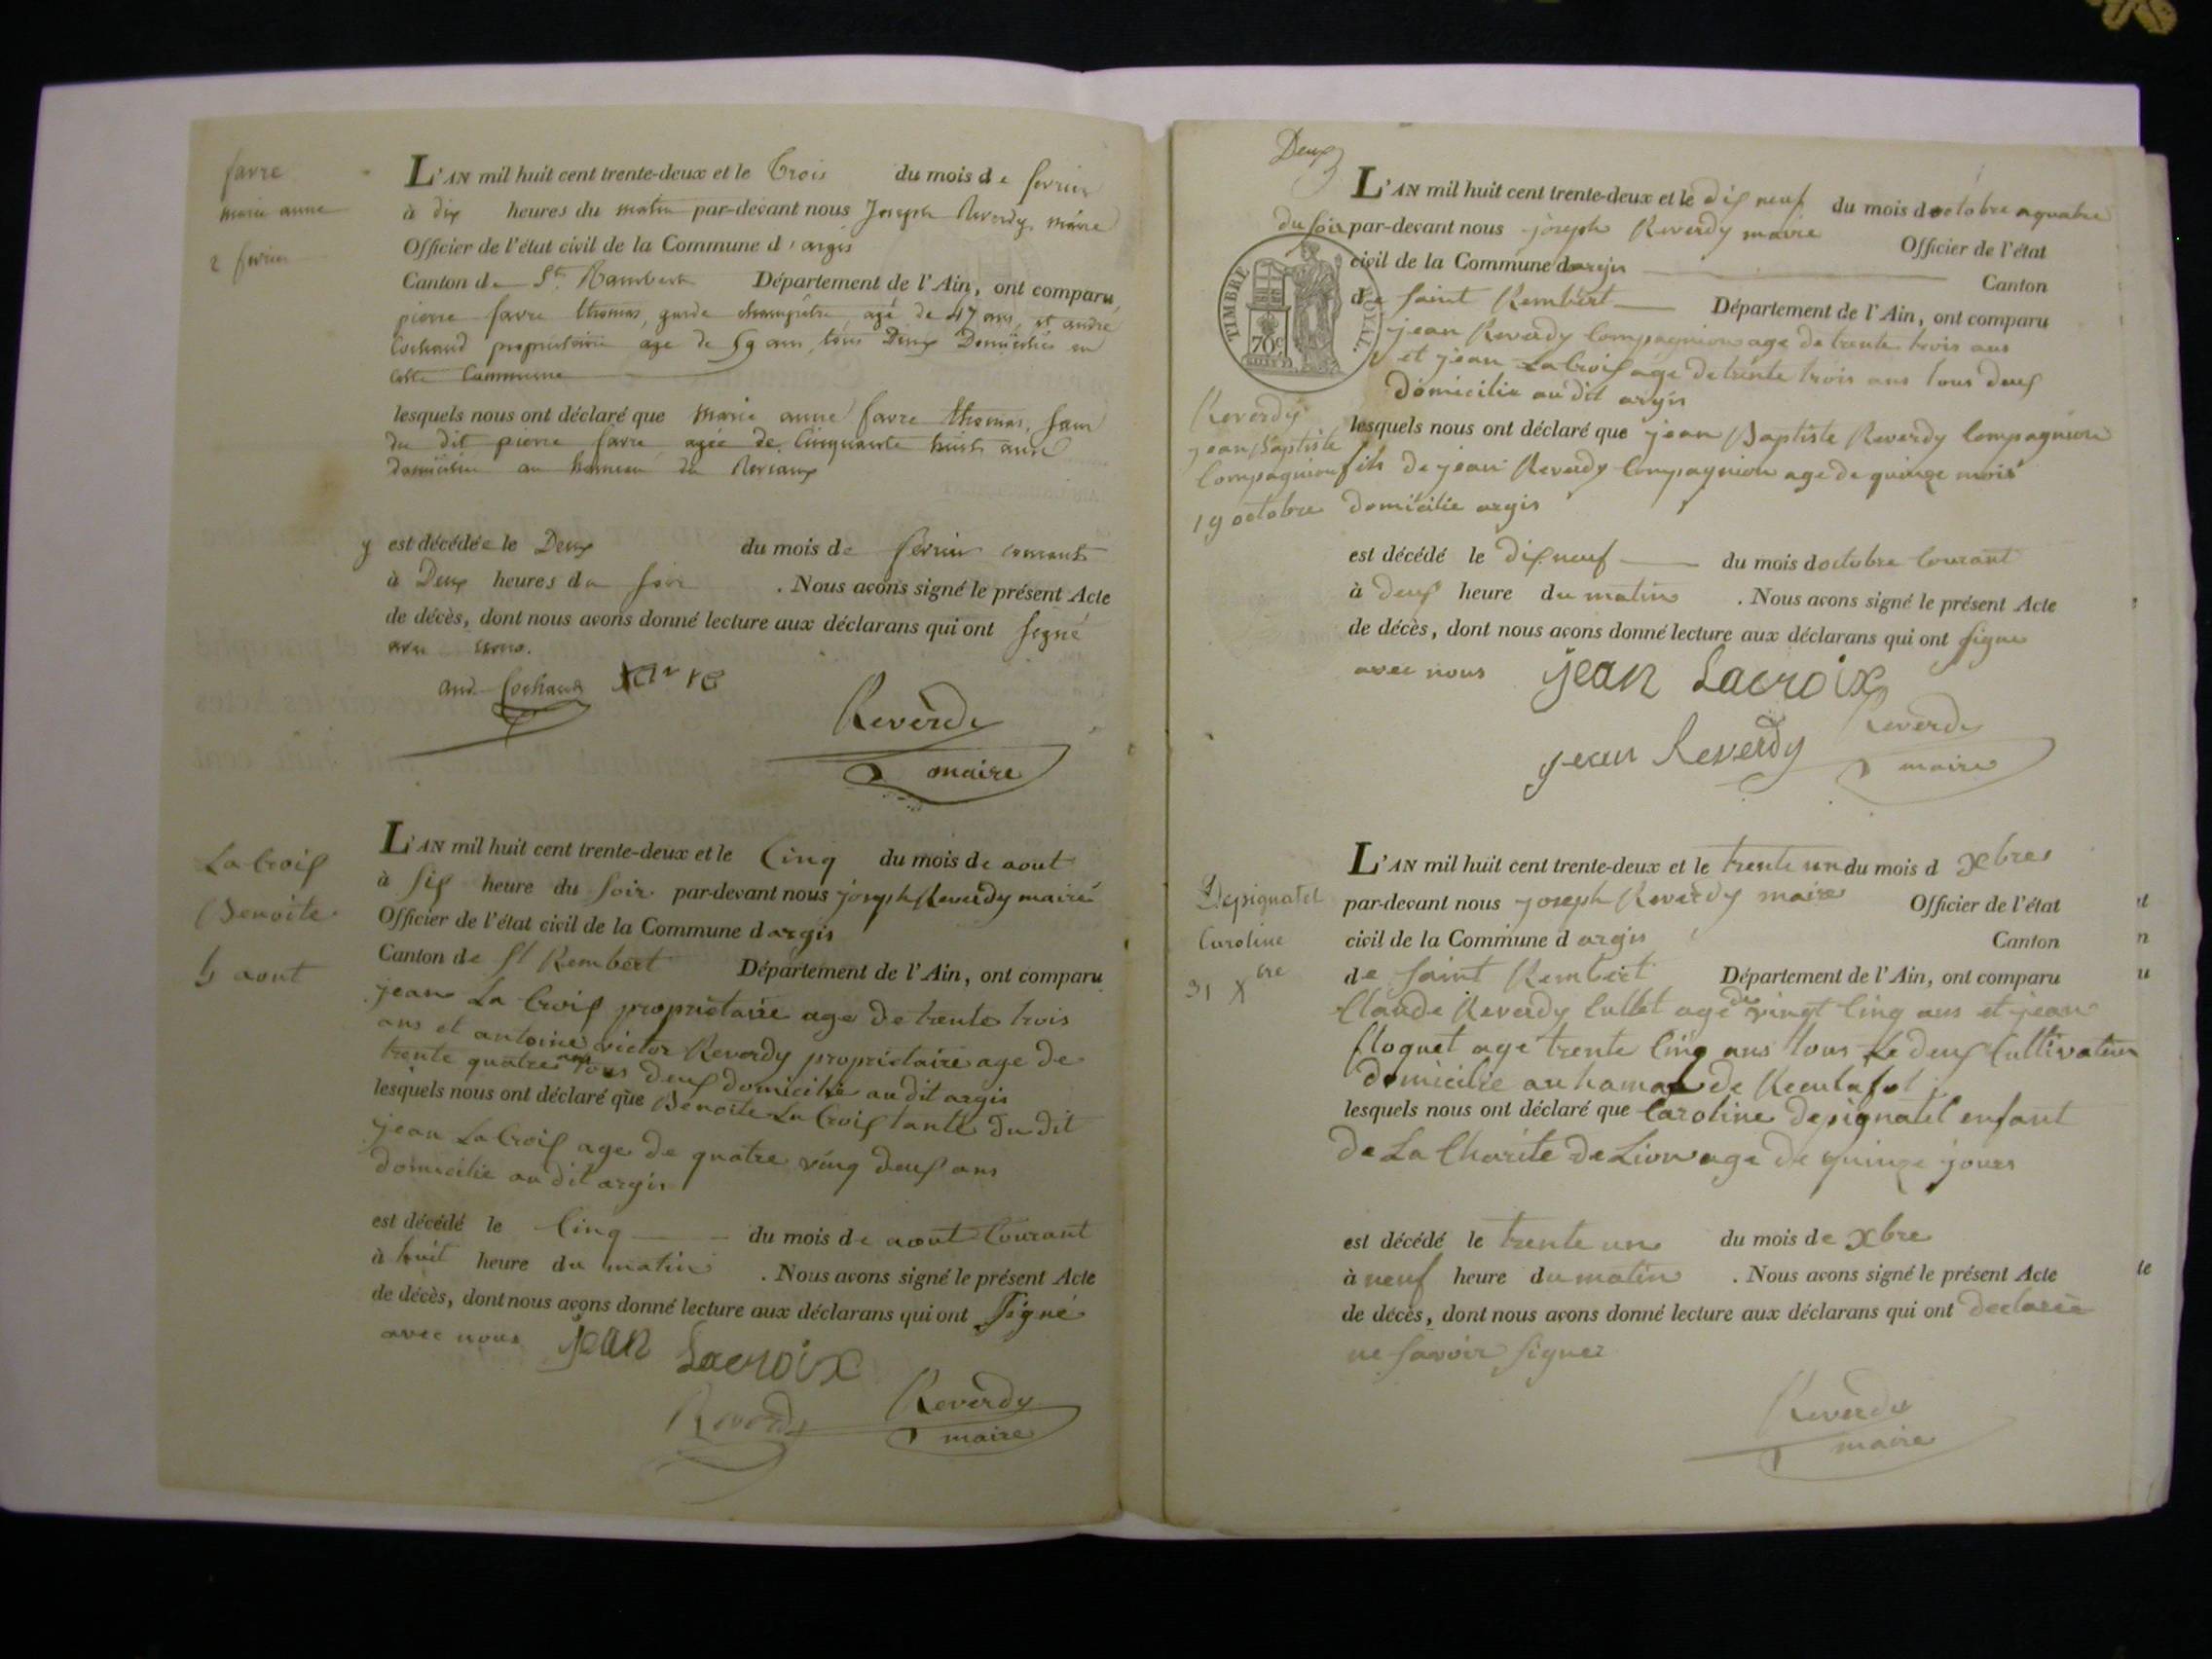 favre
marie anne
2 fevrier
L'AN mil huit cent trente-deux et le trois du mois de fevrier
à dix heures du matin par-devant nous Joseph Reverdy maire
Officier de l'état civil de la Commune d'argis
Canton de St. Rambert Département de l'Ain, ont comparu,
pierre favre thomas, garde champêtre, agé de 47 ans, et andré
Cochaud propriétaire age de 59 ans, tous Deux Domiciliés en
cette Commune
lesquels nous ont déclaré que marie anne favre thomas, sœur
du dit pierre favre, agée de Cinquante huit ans
domiciliée au hameau du
y est décédée le Deux du mois de fevrier courant
à Deux heures du soir . Nous avons signé le présent Acte
de décès, dont nous avons donné lecture aux déclarans qui ont signé
avec nous.
and Cochaud
Reverdy
maire
La Croix
Benoite
5 aout
L'AN mil huit cent trente-deux et le Cinq du mois de aout
à six heure du soir par-devant nous joseph Reverdy maire
Officier de l'état civil de la Commune dargis
Canton de St Rembert Département de l'Ain, ont comparu
jean La Croix propriétaire age de trente trois
ans et antoine victor Reverdy propriétaire age de
trente quatre ans tous deux domicilié au dit argis
lesquels nous ont déclaré que Benoite La Croix tante du dit
jean La Croix age de quatre ving deux ans
domicilié au dit argis
est décédé le Cinq du mois de aout Courant
à huit heure du matin . Nous avons signé le présent Acte
de décès, dont nous avons donné lecture aux déclarans qui ont signé
avec nous jean Lacroix
Reverdy Reverdy
maire
Deux
L'AN mil huit cent trente-deux et le dix neuf du mois doctobre aquatre
du soir par-devant nous joseph Reverdy maire Officier de l'état
civil de la Commune dargis Canton
de saint Rembert Département de l'Ain, ont comparu
TIMBRE ROYAL.
70c
jean Reverdy Compagnion age de trente trois ans
et jean La Croix age de trente trois ans tous deux
domicilie au dit argis
Reverdy
jean Baptiste
Compagnion
19 octobre
lesquels nous ont déclaré que jean Baptiste Reverdy Compagnion
fils de jean Reverdy Compagnion age de quinze mois
domicilie argis
est décédé le dix neuf du mois doctobre Courant
à deux heure du matin . Nous avons signé le présent Acte
de décès, dont nous avons donné lecture aux déclarans qui ont signe
avec nous jean Lacroix
jean Reverdy Reverdy
maire
Depignatel
Caroline
31 Xbre
L'AN mil huit cent trente-deux et le trente un du mois d xbres
par-devant nous joseph Reverdy maire Officier de l'état
civil de la Commune d argis Canton
de saint Rembert Département de l'Ain, ont comparu
Claude Reverdy Cullet age de vingt Cinq ans et jean
floquet age trente Cinq ans tous Le deux Cultivateur
domicilie au hamal de Reculafol
lesquels nous ont déclaré que Caroline depignatel enfant
de La Charite de Lion age de quinze jours
est décédé le trente un du mois de xbre
à neuf heure du matin . Nous avons signé le présent Acte
de décès, dont nous avons donné lecture aux déclarans qui ont declaré
ne savoir signer
Reverdy
maire